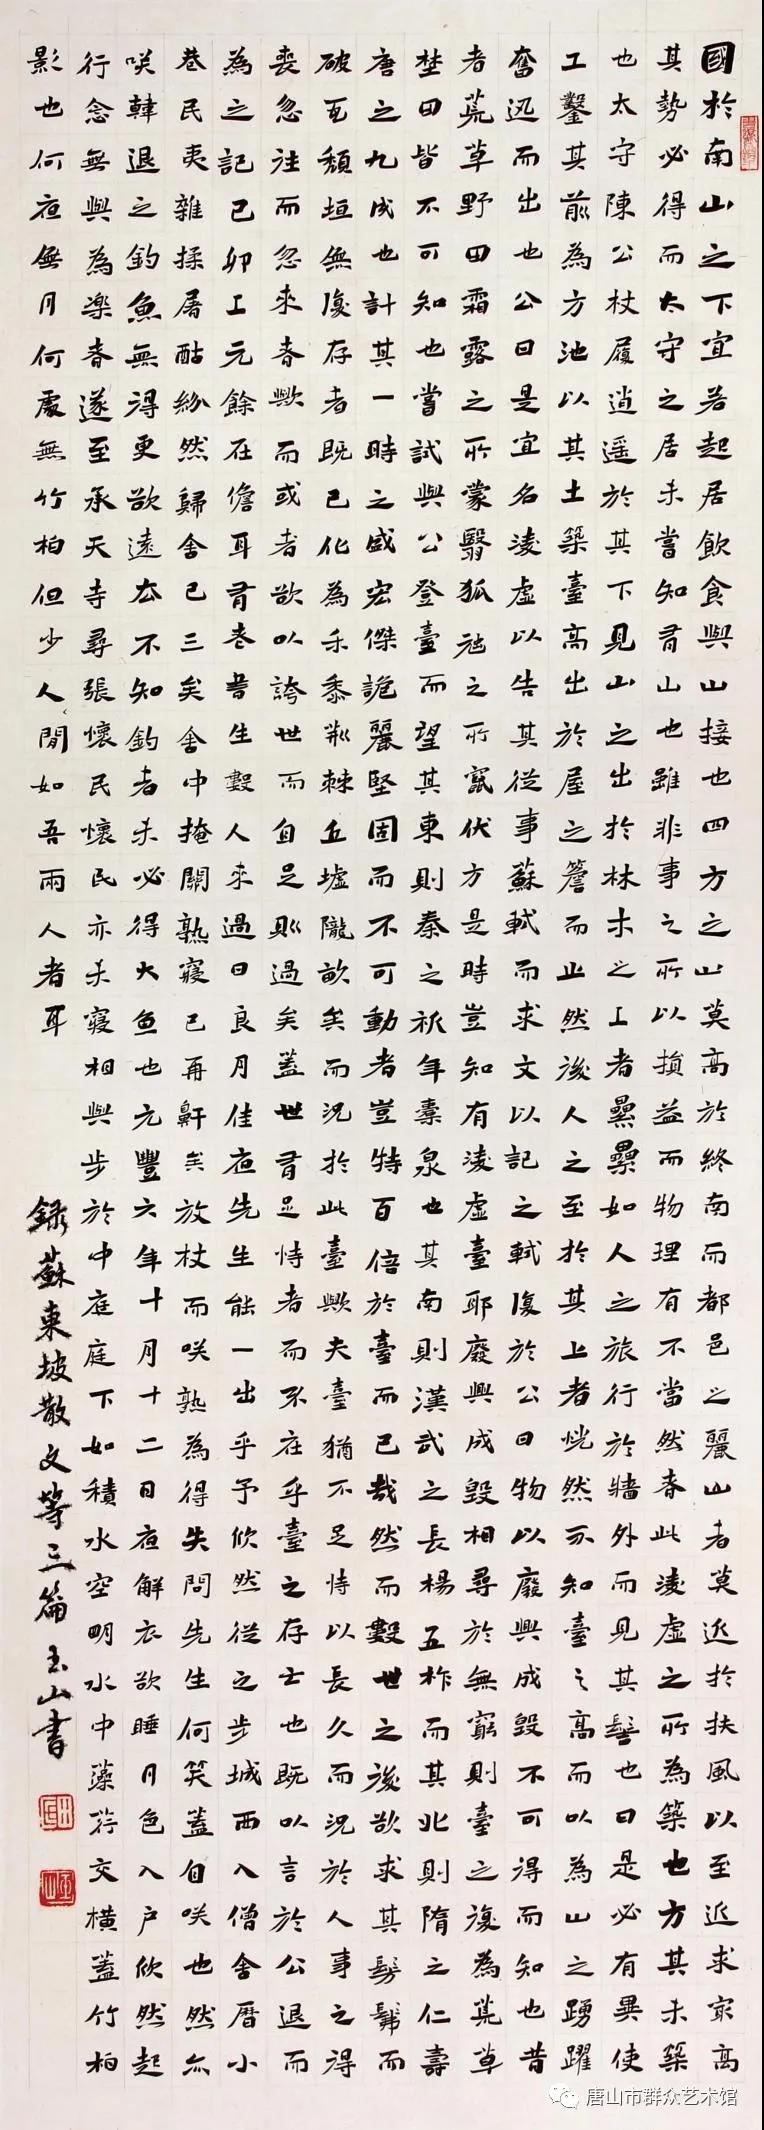 國於南山之下宜若起居飲食與山接也四方之山莫高於終南而都邑之麗山者莫近於扶風以至近求最高
其勢必得而太守之居未嘗知有山也雖非事之所以損益而物理有不當然者此凌虛之所為築也方其未築
也太守陳公杖履逍遙於其下見山之出於林木之上者纍纍如人之旅行於牆外而見其髻也曰是必有異使
工鑿其前為方池以其土築臺高出於屋之簷而止然後人之至於其上者恍然不知臺之高而以為山之踴躍
奮迅而出也公曰是宜名凌虛以告其從事蘇軾而求文以記之軾復於公曰物以廢興成毀不可得而知也昔
者荒草野田霜露之所蒙翳狐虺之所竄伏方是時豈知有凌虛臺耶廢興成毀相尋於無窮則臺之復為荒草
埜田皆不可知也嘗試與公登臺而望其東則秦之祈年橐泉也其南則漢武之長楊五柞而其北則隋之仁壽
唐之九成也計其一時之盛宏傑詭麗堅固而不可動者豈特百倍於臺而已哉然而數世之後欲求其髣髴而
破瓦頹垣無復存者既已化為禾黍荊棘丘墟隴畝矣而況於此臺歟夫臺猶不足恃以長久而況於人事之得
喪忽往而忽來者歟而或者欲以誇世而自足則過矣蓋世有足恃者而不在乎臺之存亡也既以言於公退而
為之記己卯上元餘在儋耳有老書生數人來過曰良月佳夜先生能一出乎予欣然從之步城西入僧舍曆小
巷民夷雜揉屠酤紛然歸舍已三矣舍中掩關熟寢已再鼾矣放杖而咲熟為得失問先生何笑蓋自咲也然亦
咲韓退之釣魚無得更欲遠去不知釣者未必得大魚也元豐六年十月十二日夜解衣欲睡月色入戶欣然起
行念無與為樂者遂至承天寺尋張懷民懷民亦未寢相與步於中庭庭下如積水空明水中藻荇交橫蓋竹柏
影也何夜無月何處無竹柏但少人閒如吾兩人者耳
錄蘇東坡散文等三篇玉山書
唐山市群众艺术馆